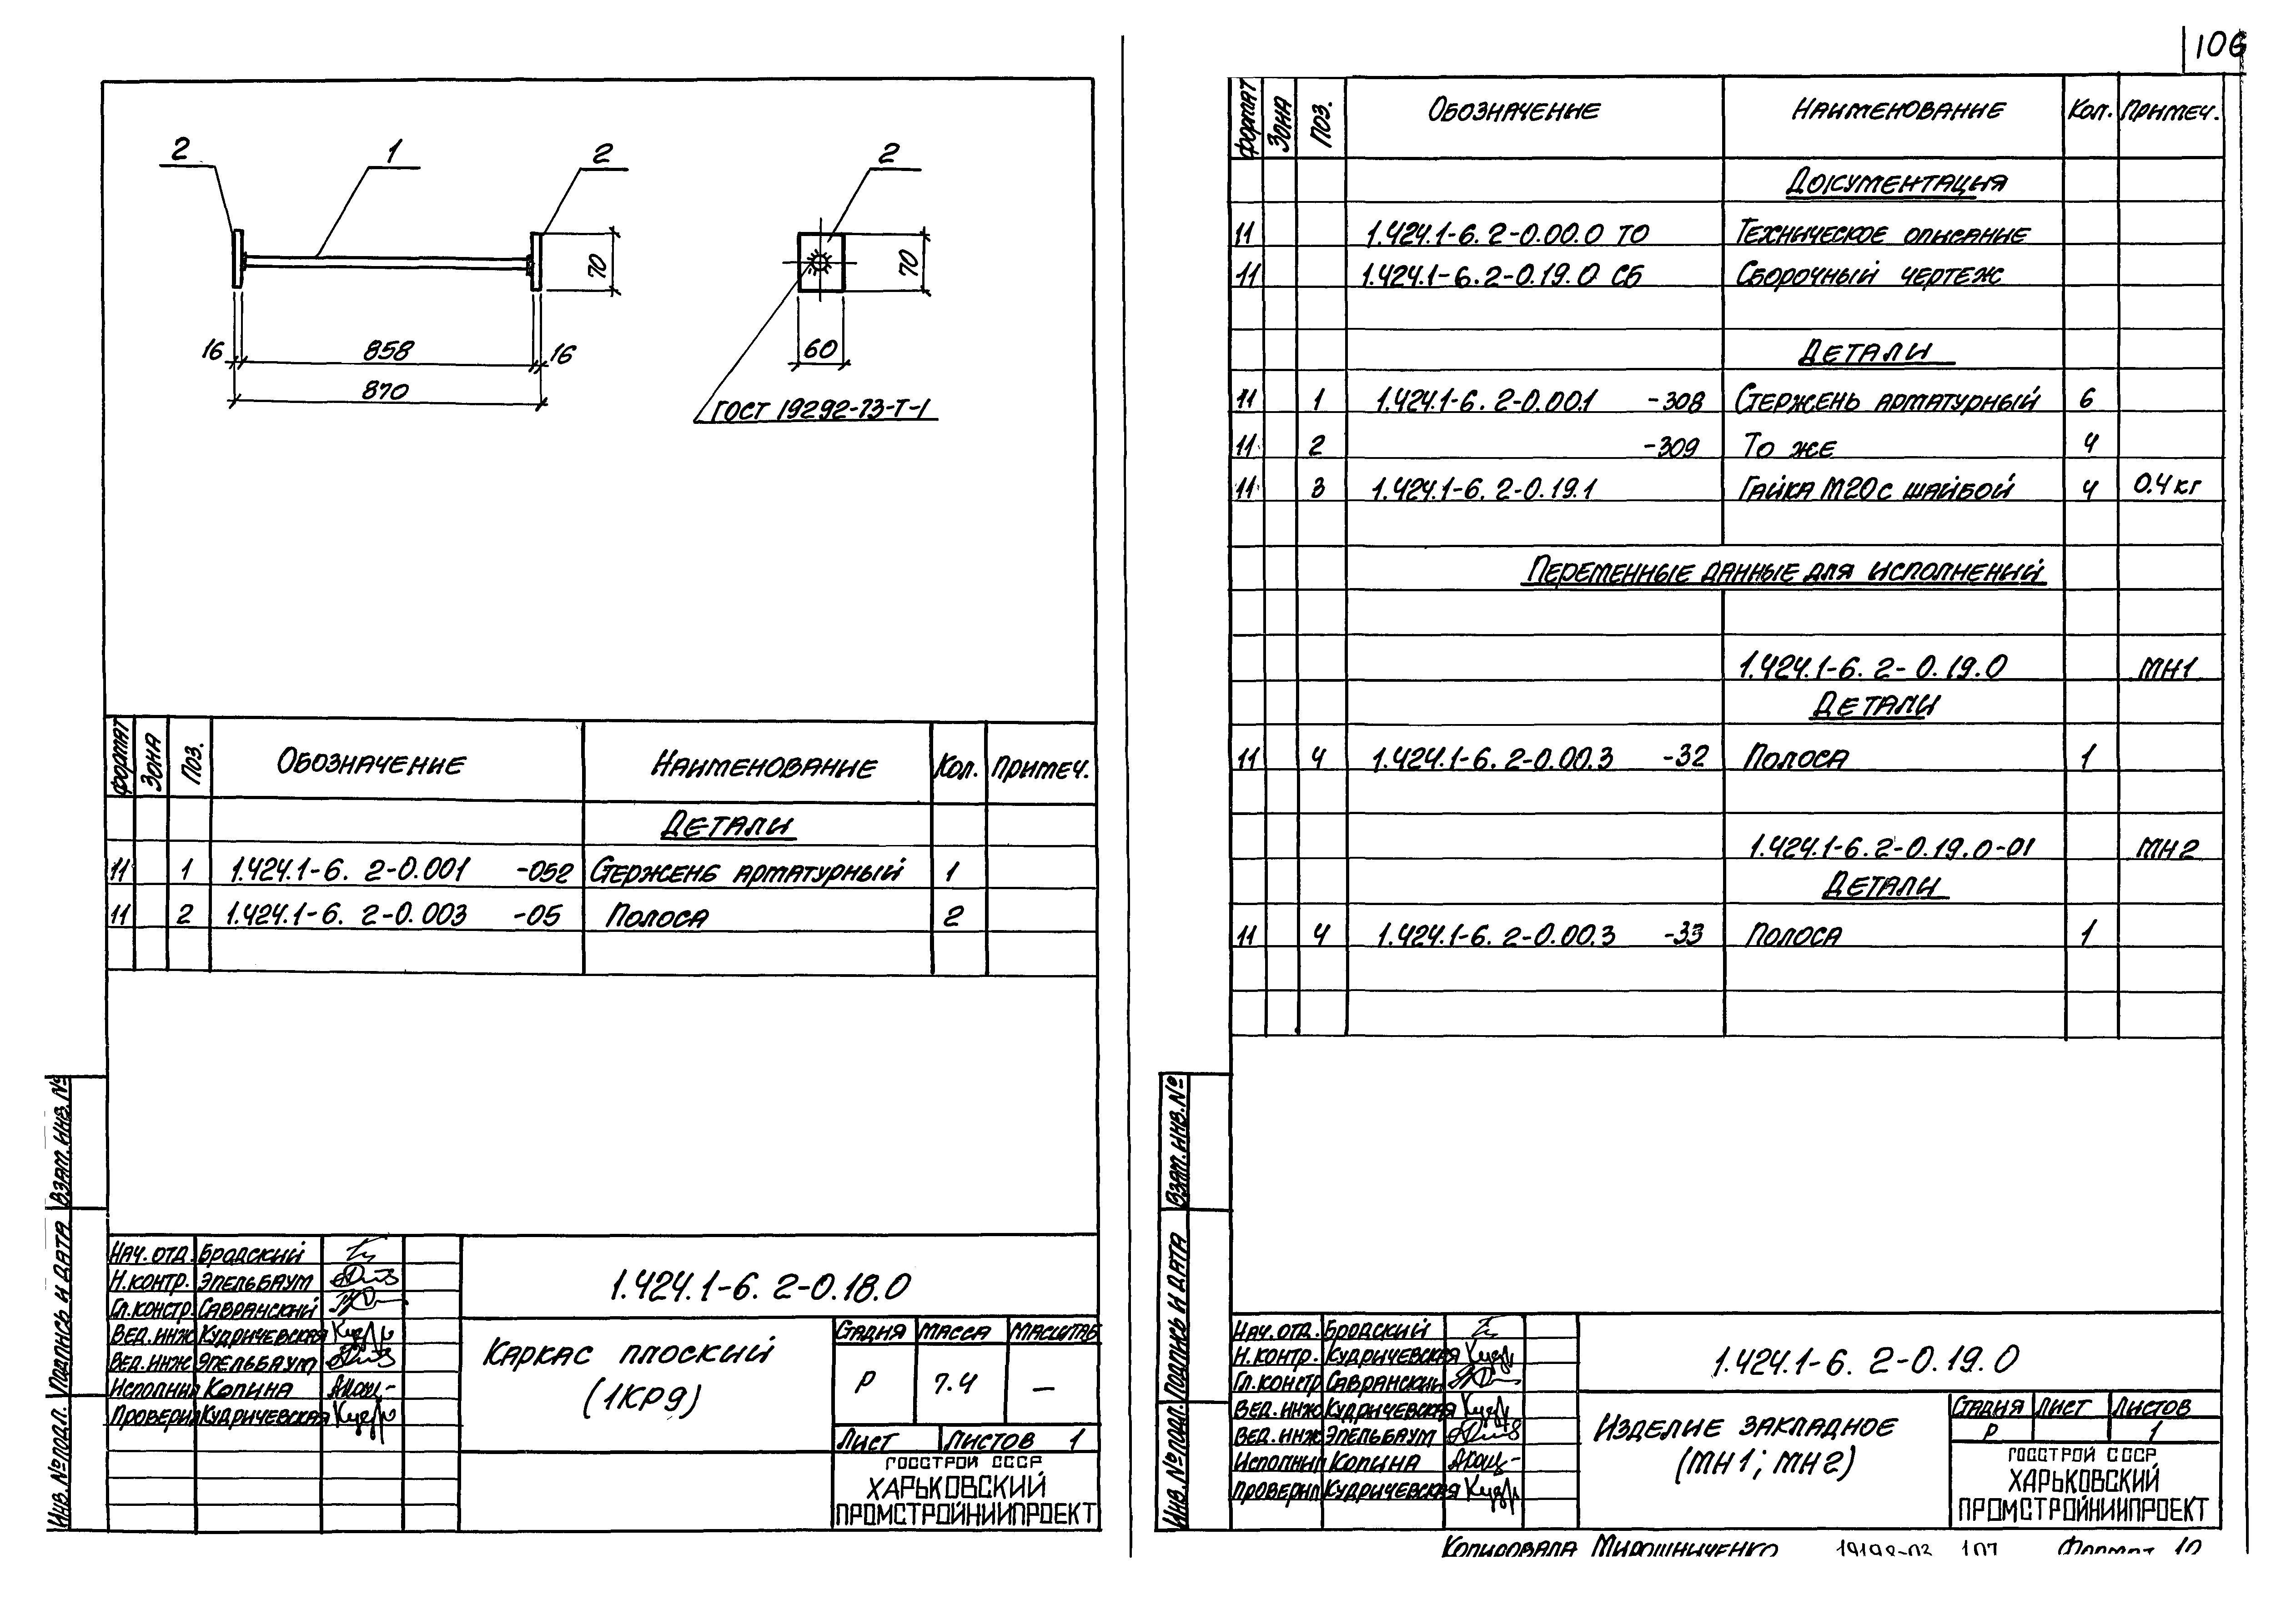 106
2 1 2 2
70 70
16 858 16 60
870
ГОСТ 19292-73-Т-1
Формат Зона Поз. Обозначение Наименование Кол. Примеч.
Детали
11 1 1.424.1-6. 2-0.001 -052 Стержень арматурный 1
11 2 1.424.1-6. 2-0.003 -05 Полоса 2
Взам. инв. №
Подпись и дата
Инв. № подл.
Нач. отд. Бродский
Н. контр. Эпельбаум
Гл. констр. Савранский
Вед. инж. Кудричевская
Вед. инж. Эпельбаум
Исполнил Копина
Проверил Кудричевская
1.424.1-6. 2-0.18.0
Каркас плоский
(1КР9)
Стадия Масса Масштаб
Р 7.4 —
Лист Листов 1
ГОССТРОЙ СССР
ХАРЬКОВСКИЙ
ПРОМСТРОЙНИИПРОЕКТ
Формат Зона Поз. Обозначение Наименование Кол. Примеч.
Документация
11 1.424.1-6. 2-0.00.0 ТО Техническое описание
11 1.424.1-6. 2-0.19.0 СБ Сборочный чертеж
Детали
11 1 1.424.1-6. 2-0.00.1 -308 Стержень арматурный 6
11 2 -309 То же 4
11 3 1.424.1-6. 2-0.19.1 Гайка М20 с шайбой 4 0.4 кг
Переменные данные для исполнений
1.424.1-6. 2-0.19.0 МН1
Детали
11 4 1.424.1-6. 2-0.00.3 -32 Полоса 1
1.424.1-6. 2-0.19.0-01 МН2
Детали
11 4 1.424.1-6. 2-0.00.3 -33 Полоса 1
Взам. инв. №
Подпись и дата
Инв. № подл.
Нач. отд. Бродский
Н. контр. Кудричевская
Гл. констр. Савранский
Вед. инж. Кудричевская
Вед. инж. Эпельбаум
Исполнил Копина
Проверил Кудричевская
1.424.1-6. 2-0.19.0
Изделие закладное
(МН1; МН2)
Стадия Лист Листов
Р 1
ГОССТРОЙ СССР
ХАРЬКОВСКИЙ
ПРОМСТРОЙНИИПРОЕКТ
Копировала Мирошниченко 107 Формат